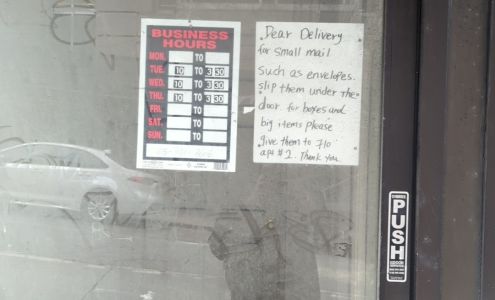 BUSINESS
HOURS
MON. TO
TUE. 10 TO 3 30
WED. 10 TO 3 30
THU. 10 TO 3 30
FRI. TO
SAT. TO
SUN. TO
Dear Delivery
for small mail
such as envelopes.
slip them under the
door for boxes and
big items please
give them to 710
apt #2. Thank you.
PUSH